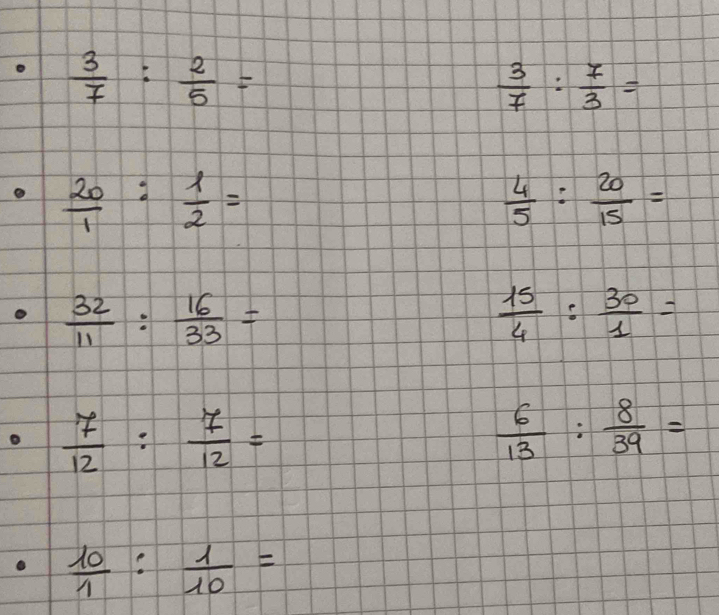 • 3/7 : 2/5 = 3/7 : 7/3 =
• 20/1 : 1/2 = 4/5 : 20/15 =
• 32/11 : 16/33 = 15/4 : 30/1 =
• 7/12 : 7/12 = 6/13 : 8/39 =
• 10/1 : 1/10 =